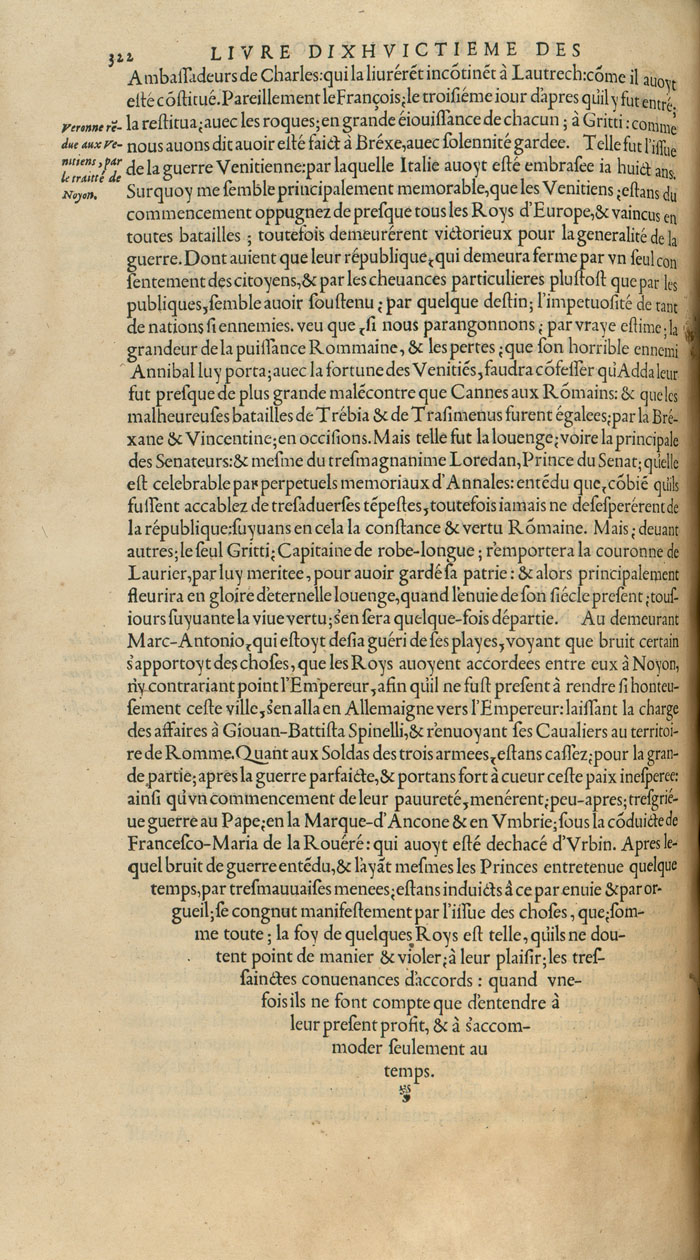 322 LIVRE DIXHVICTIEME DES
Ambaſſadeurs de Charles:qui la liurérẽt incõtinẽt à Lautrech:cõme il auoyt
eſté cõſtitué. Pareillement le François;le troiſiéme iour d'apres qu'il y fut entré,
la reſtitua;auec les roques;en grande éiouiſſance de chacun ; à Gritti : comme
nous auons dit auoir eſté faict à Bréxe,auec ſolennité gardee. Telle fut l'iſſue
de la guerre Venitienne:par laquelle Italie auoyt eſté embraſee ia huict ans.
Veronne rẽ-
due aux Ve-
nitiens, par
le traitté de
Noyon.
Surquoy me ſemble principalement memorable,que les Venitiens ;eſtans du
commencement oppugnez de preſque tous les Roys d'Europe,& vaincus en
toutes batailles ; toutefois demeurérent victorieux pour la generalité de la
guerre. Dont auient que leur république,qui demeura ferme par vn ſeul con
ſentement des citoyens,& par les cheuances particulieres pluſtoſt que par les
publiques,ſemble auoir ſouſtenu ; par quelque deſtin; l'impetuoſité de tant
de nations ſi ennemies. veu que ,ſi nous parangonnons ; par vraye eſtime ; la
grandeur de la puiſſance Rommaine, & les pertes ;que ſon horrible ennemi
Annibal luy porta;auec la fortune des Venitiẽs,faudra cõfeſſer qu'Adda leur
fut preſque de plus grande malécontre que Cannes aux Rõmains: & que les
malheureuſes batailles de Trébia & de Traſimenus furent égalees;par la Bré-
xane & Vincentine;en occiſions. Mais telle fut la louenge;voire la principale
des Senateurs:& meſme du treſmagnanime Loredan,Prince du Senat; qu'elle
eſt celebrable par perpetuels memoriaux d'Annales: entẽdu que,cõbié qu'ils
fuſſent accablez de treſaduerſes tẽpeſtes,toutefois iamais ne deſeſperérent de
la république:ſuyuans en cela la conſtance & vertu Rõmaine. Mais ; deuant
autres;le ſeul Gritti;Capitaine de robe-longue ; r'emportera la couronne de
Laurier,par luy meritee, pour auoir gardé ſa patrie : & alors principalement
fleurira en gloire d'eternelle louenge,quand l'enuie de ſon ſiécle preſent ;touſ-
iours ſuyuante la viue vertu;s'en ſera quelque-fois départie. Au demeurant
Marc-Antonio,qui eſtoyt deſia guéri de ſes playes,voyant que bruit certain
s'apportoyt des choſes, que les Roys auoyent accordees entre eux à Noyon,
n'y contrariant point l'Empereur,afin qu'il ne fuſt preſent à rendre ſi honteu-
ſement ceſte ville,s'en alla en Allemaigne vers l'Empereur: laiſſant la charge
des affaires à Giouan-Battiſta Spinelli,& r'enuoyant ſes Caualiers au territoi-
re de Romme. Quant aux Soldas des trois armees,eſtans caſſez;pour la gran-
de partie;apres la guerre parfaicte,& portans fort à cueur ceſte paix ineſperee:
ainſi qu'vn commencement de leur pauureté,menérent;peu-apres;treſgrié-
ue guerre au Pape;en la Marque-d'Ancone & en Vmbrie;ſous la cõduicte de
Franceſco-Maria de la Rouéré: qui auoyt eſté dechacé d'Vrbin. Apres le-
quel bruit de guerre entẽdu,& l'ayãt meſmes les Princes entretenue quelque
temps,par treſmauuaiſes menees;eſtans induicts à ce par enuie & par or-
gueil;ſe congnut manifeſtement par l'iſſue des choſes, que;ſom-
me toute ; la foy de quelques Roys eſt telle, qu'ils ne dou-
tent point de manier & violer;à leur plaiſir;les treſ-
ſainctes conuenances d'accords : quand vne-
fois ils ne font compte que d'entendre à
leur preſent profit, & à s'accom-
moder ſeulement au
temps.